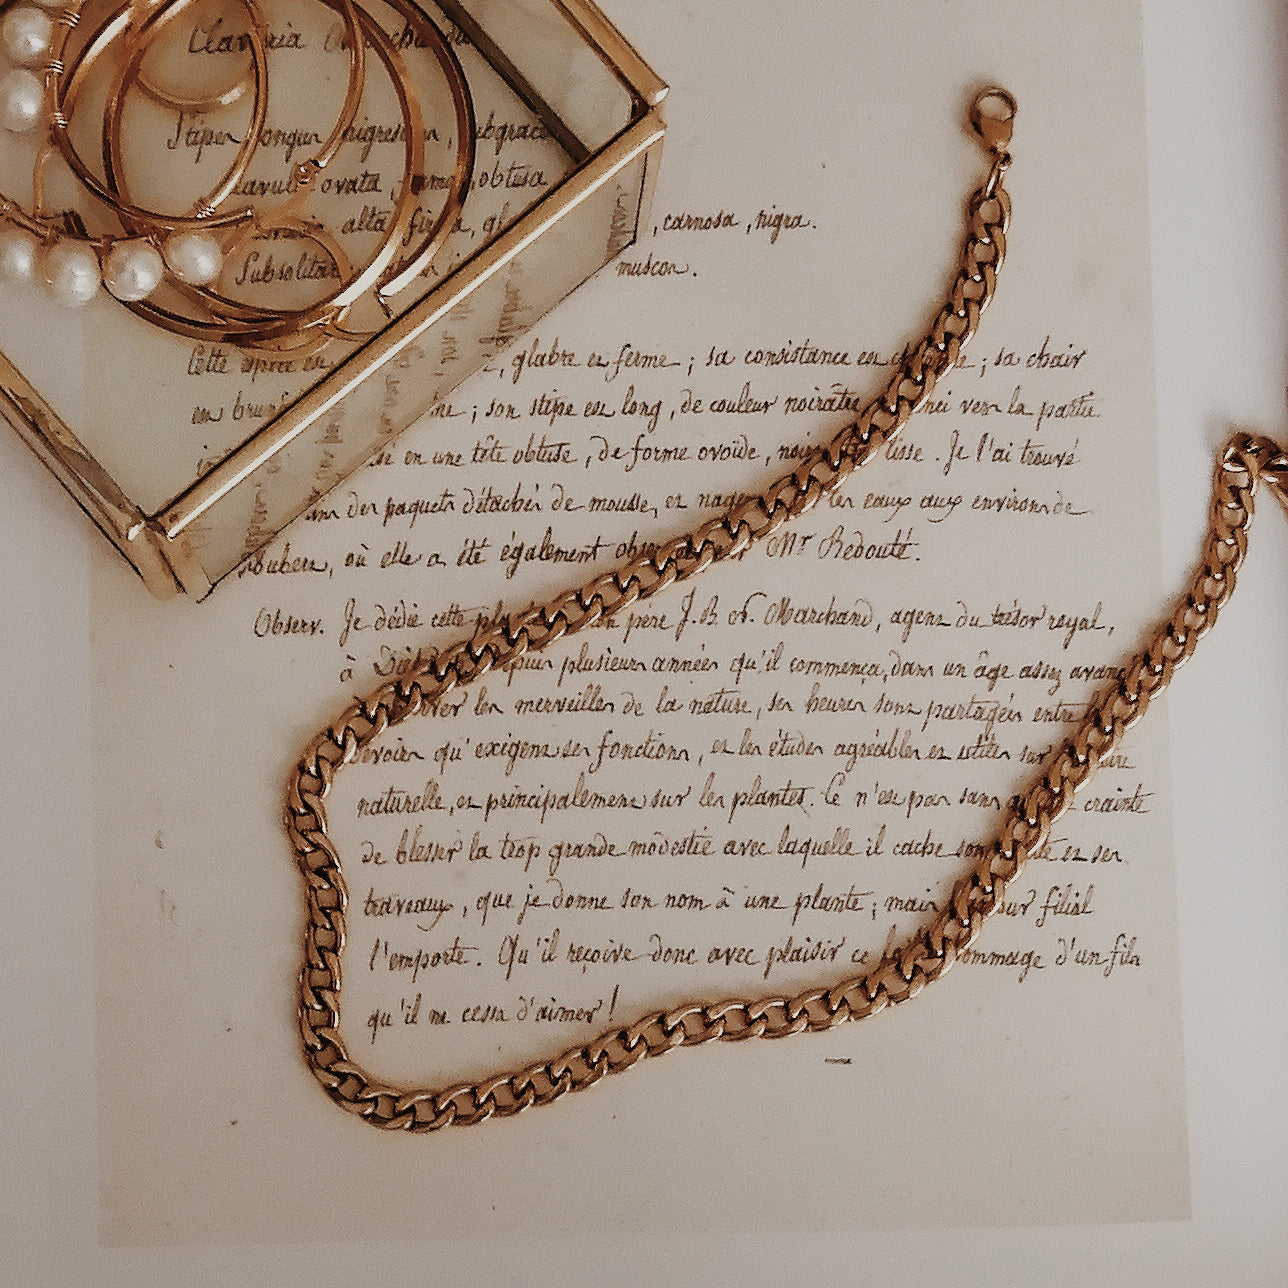 Stipes longus nigrescens,
ovata, obtusa
alta, carnosa, nigra.
muscos.
Cette espèce est glabre et ferme ; sa consistance est ; sa chair
en ; son stipe est long, de couleur noirâtre, vers la partie
en une tête obtuse, de forme ovoïde, lisse. Je l'ai trouvé
des paquets détachés de mousse, et les eaux aux environs de
où elle a été également Mr Redouté.
Observ. Je dédie cette père J. B. N. Marchand, agent du trésor royal,
à plusieurs années qu'il commença, dans un âge assez avancé
les merveilles de la nature, ses heures sont partagées entre
devoirs qu'exigent ses fonctions, et les études agréables et utiles sur
naturelle, et principalement sur les plantes. Ce n'est pas sans crainte
de blesser la trop grande modestie avec laquelle il cache son et ses
travaux, que je donne son nom à une plante ; mais filial
l'emporte. Qu'il reçoive donc avec plaisir ce hommage d'un fils
qu'il ne cessa d'aimer !